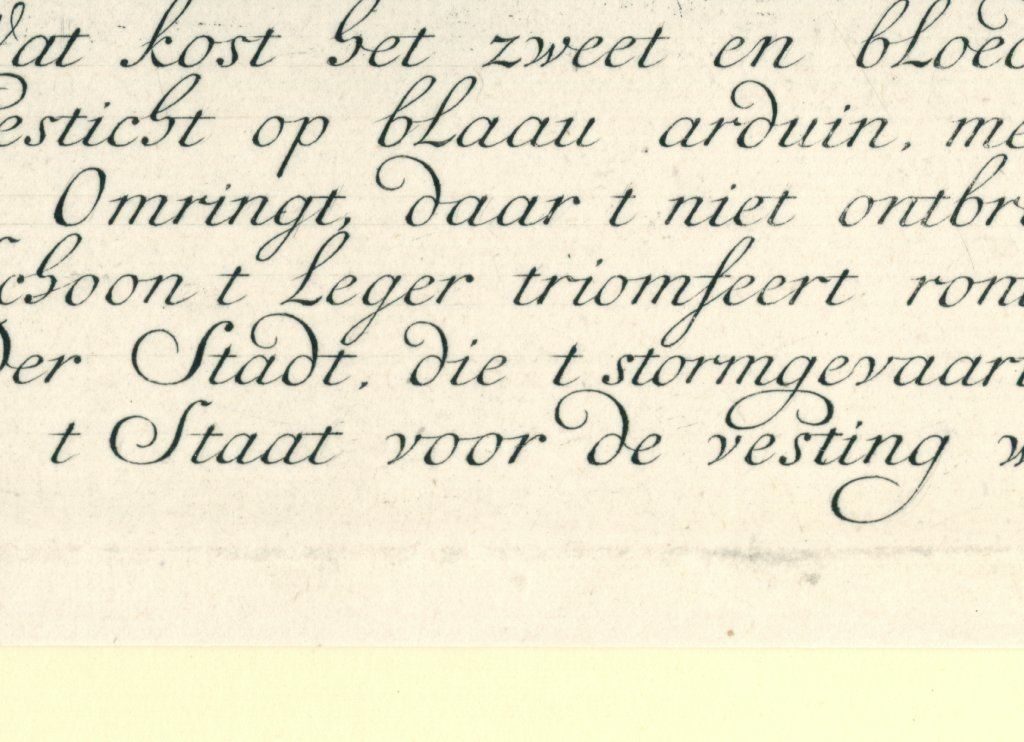 Wat kost het zweet en bloed
Gesticht op blaau arduin, me
Omringt, daar t niet ontbr
Schoon t Leger triomfeert ron
Der Stadt, die t stormgevaart
t Staat voor de vesting w